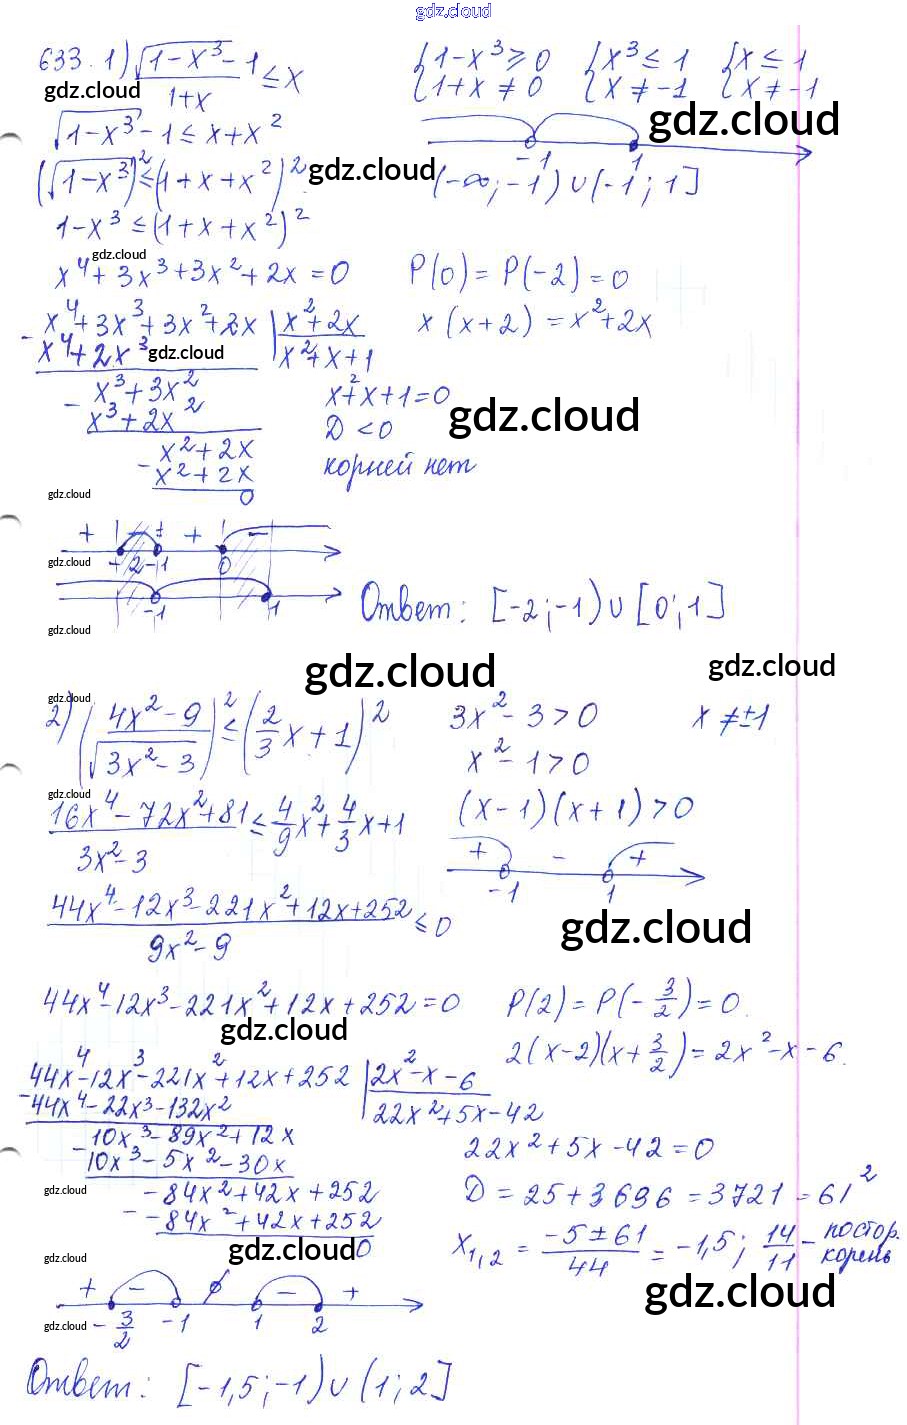 gdz.cloud
633. 1) (√(1-x³) - 1)/(1+x) ≤ x
{1-x³ ≥ 0 {x³ ≤ 1 {x ≤ 1
{1+x ≠ 0 {x ≠ -1 {x ≠ -1
gdz.cloud
gdz.cloud
√(1-x³) - 1 ≤ x+x²
-1 1
(√(1-x³))² ≤ (1+x+x²)²
gdz.cloud
(-∞; -1) ∪ (-1; 1]
1-x³ ≤ (1+x+x²)²
gdz.cloud
x⁴+3x³+3x²+2x = 0
P(0) = P(-2) = 0
x⁴+3x³+3x²+2x | x²+2x
x (x+2) = x²+2x
- x⁴+2x³
x²+x+1
gdz.cloud
x³+3x²
x²+x+1=0
gdz.cloud
- x³+2x²
D < 0
x²+2x
корней нет
- x²+2x
0
gdz.cloud
+ - + -
gdz.cloud
-2 -1 0
-1 1
Ответ: [-2; -1) ∪ [0; 1]
gdz.cloud
gdz.cloud
gdz.cloud
gdz.cloud
2) ((4x²-9)/√(3x²-3))² ≤ (2/3 x + 1)²
3x²-3>0
x ≠ ±1
x²-1>0
gdz.cloud
(16x⁴-72x²+81)/(3x²-3) ≤ 4/9 x² + 4/3 x + 1
(x-1)(x+1)>0
+ - +
-1 1
(44x⁴-12x³-221x²+12x+252)/(9x²-9) ≤ 0
gdz.cloud
44x⁴-12x³-221x²+12x+252=0
P(2) = P(-3/2) = 0.
gdz.cloud
2(x-2)(x+3/2) = 2x²-x-6.
44x⁴-12x³-221x²+12x+252 | 2x²-x-6
- 44x⁴-22x³-132x²
22x²+5x-42
10x³-89x²+12x
22x²+5x-42=0
- 10x³-5x²-30x
gdz.cloud
-84x²+42x+252
D = 25+3696 = 3721 = 61²
- -84x²+42x+252
0
gdz.cloud
x₁,₂ = (-5±61)/44 = -1,5; 14/11 - постор. корень
gdz.cloud
+ - ∅ - +
gdz.cloud
-3/2 -1 1 2
Ответ: [-1,5; -1) ∪ (1; 2]